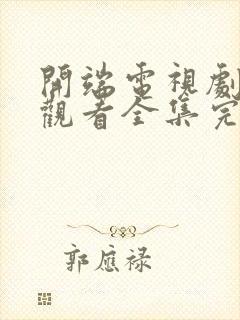 開端電視劇
觀看全集完
郭應祿